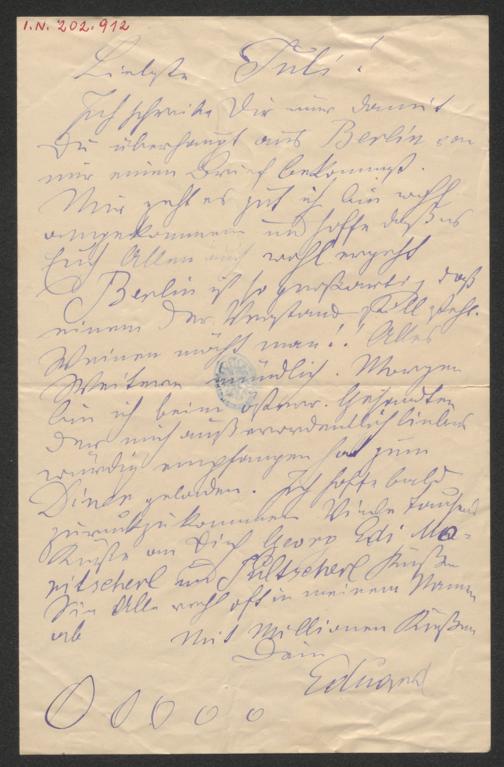 I.N. 202.912
Liebste Juli!
Ich schreibe Dir nur damit
Du überhaupt aus Berlin von
mir einen Brief bekommst.
Mir geht es gut ich bin wohl
angekommen und hoffe daß es
Euch Allen auch wohl ergeht
Berlin ist so großartig daß
einem der Verstand still steht.
Weinen möcht man!! Alles
Weitere mündlich. Morgen
bin ich beim österr. Gesandten
der mich außerordentlich liebens
würdig empfangen hat zum
Diner geladen. Ich hoffe bald
zurückzukommen Viele Tausend
Küsse an Dich Georg Edi Ma-
ritscherl und Jultscherl Küsse
Sie Alle recht oft in meinem Namen
ab Mit Millionen Küssen
Dein
Eduard